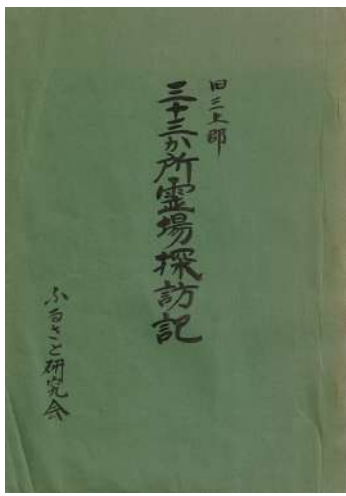 旧三上郡
三十三か所霊場探訪記
ふるさと研究会